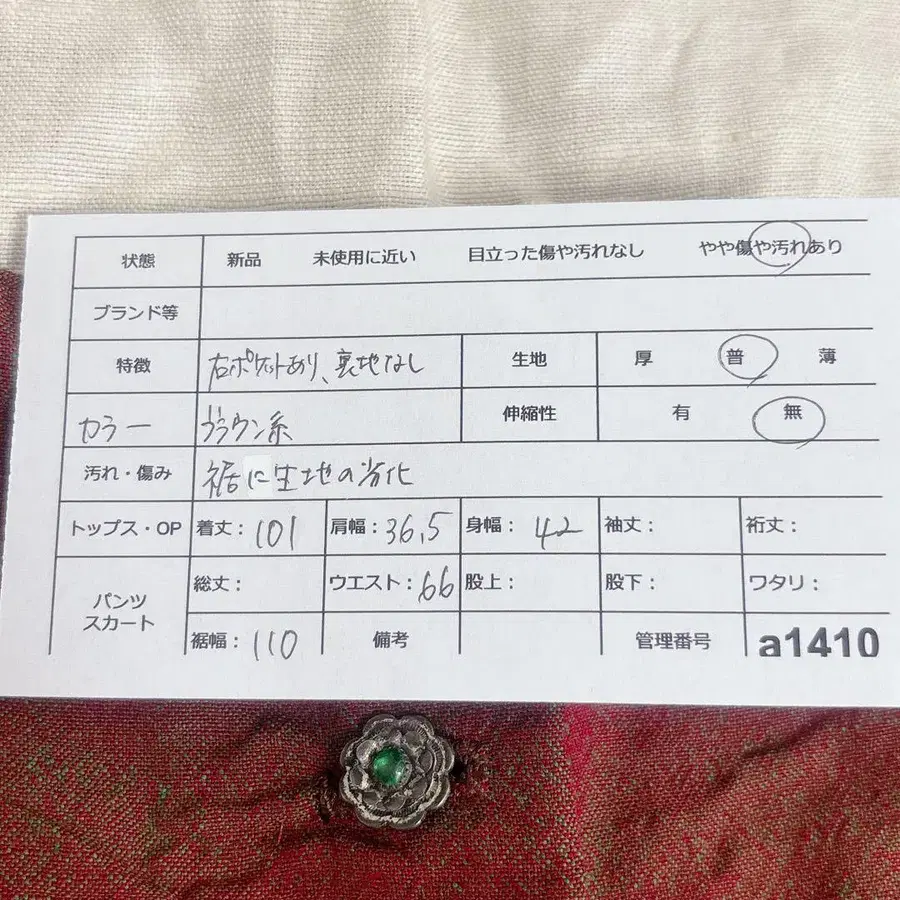 状態 新品 未使用に近い 目立った傷や汚れなし やや傷や汚れあり
ブランド等
特徴 右ポケットあり、裏地なし 生地 厚 普 薄
カラー ブラウン系 伸縮性 有 無
汚れ・傷み 裾に生地の劣化
トップス・OP 着丈：101 肩幅：36.5 身幅：42 袖丈： 裄丈：
パンツ スカート 総丈： ウエスト：66 股上： 股下： ワタリ：
裾幅：110 備考 管理番号 a1410